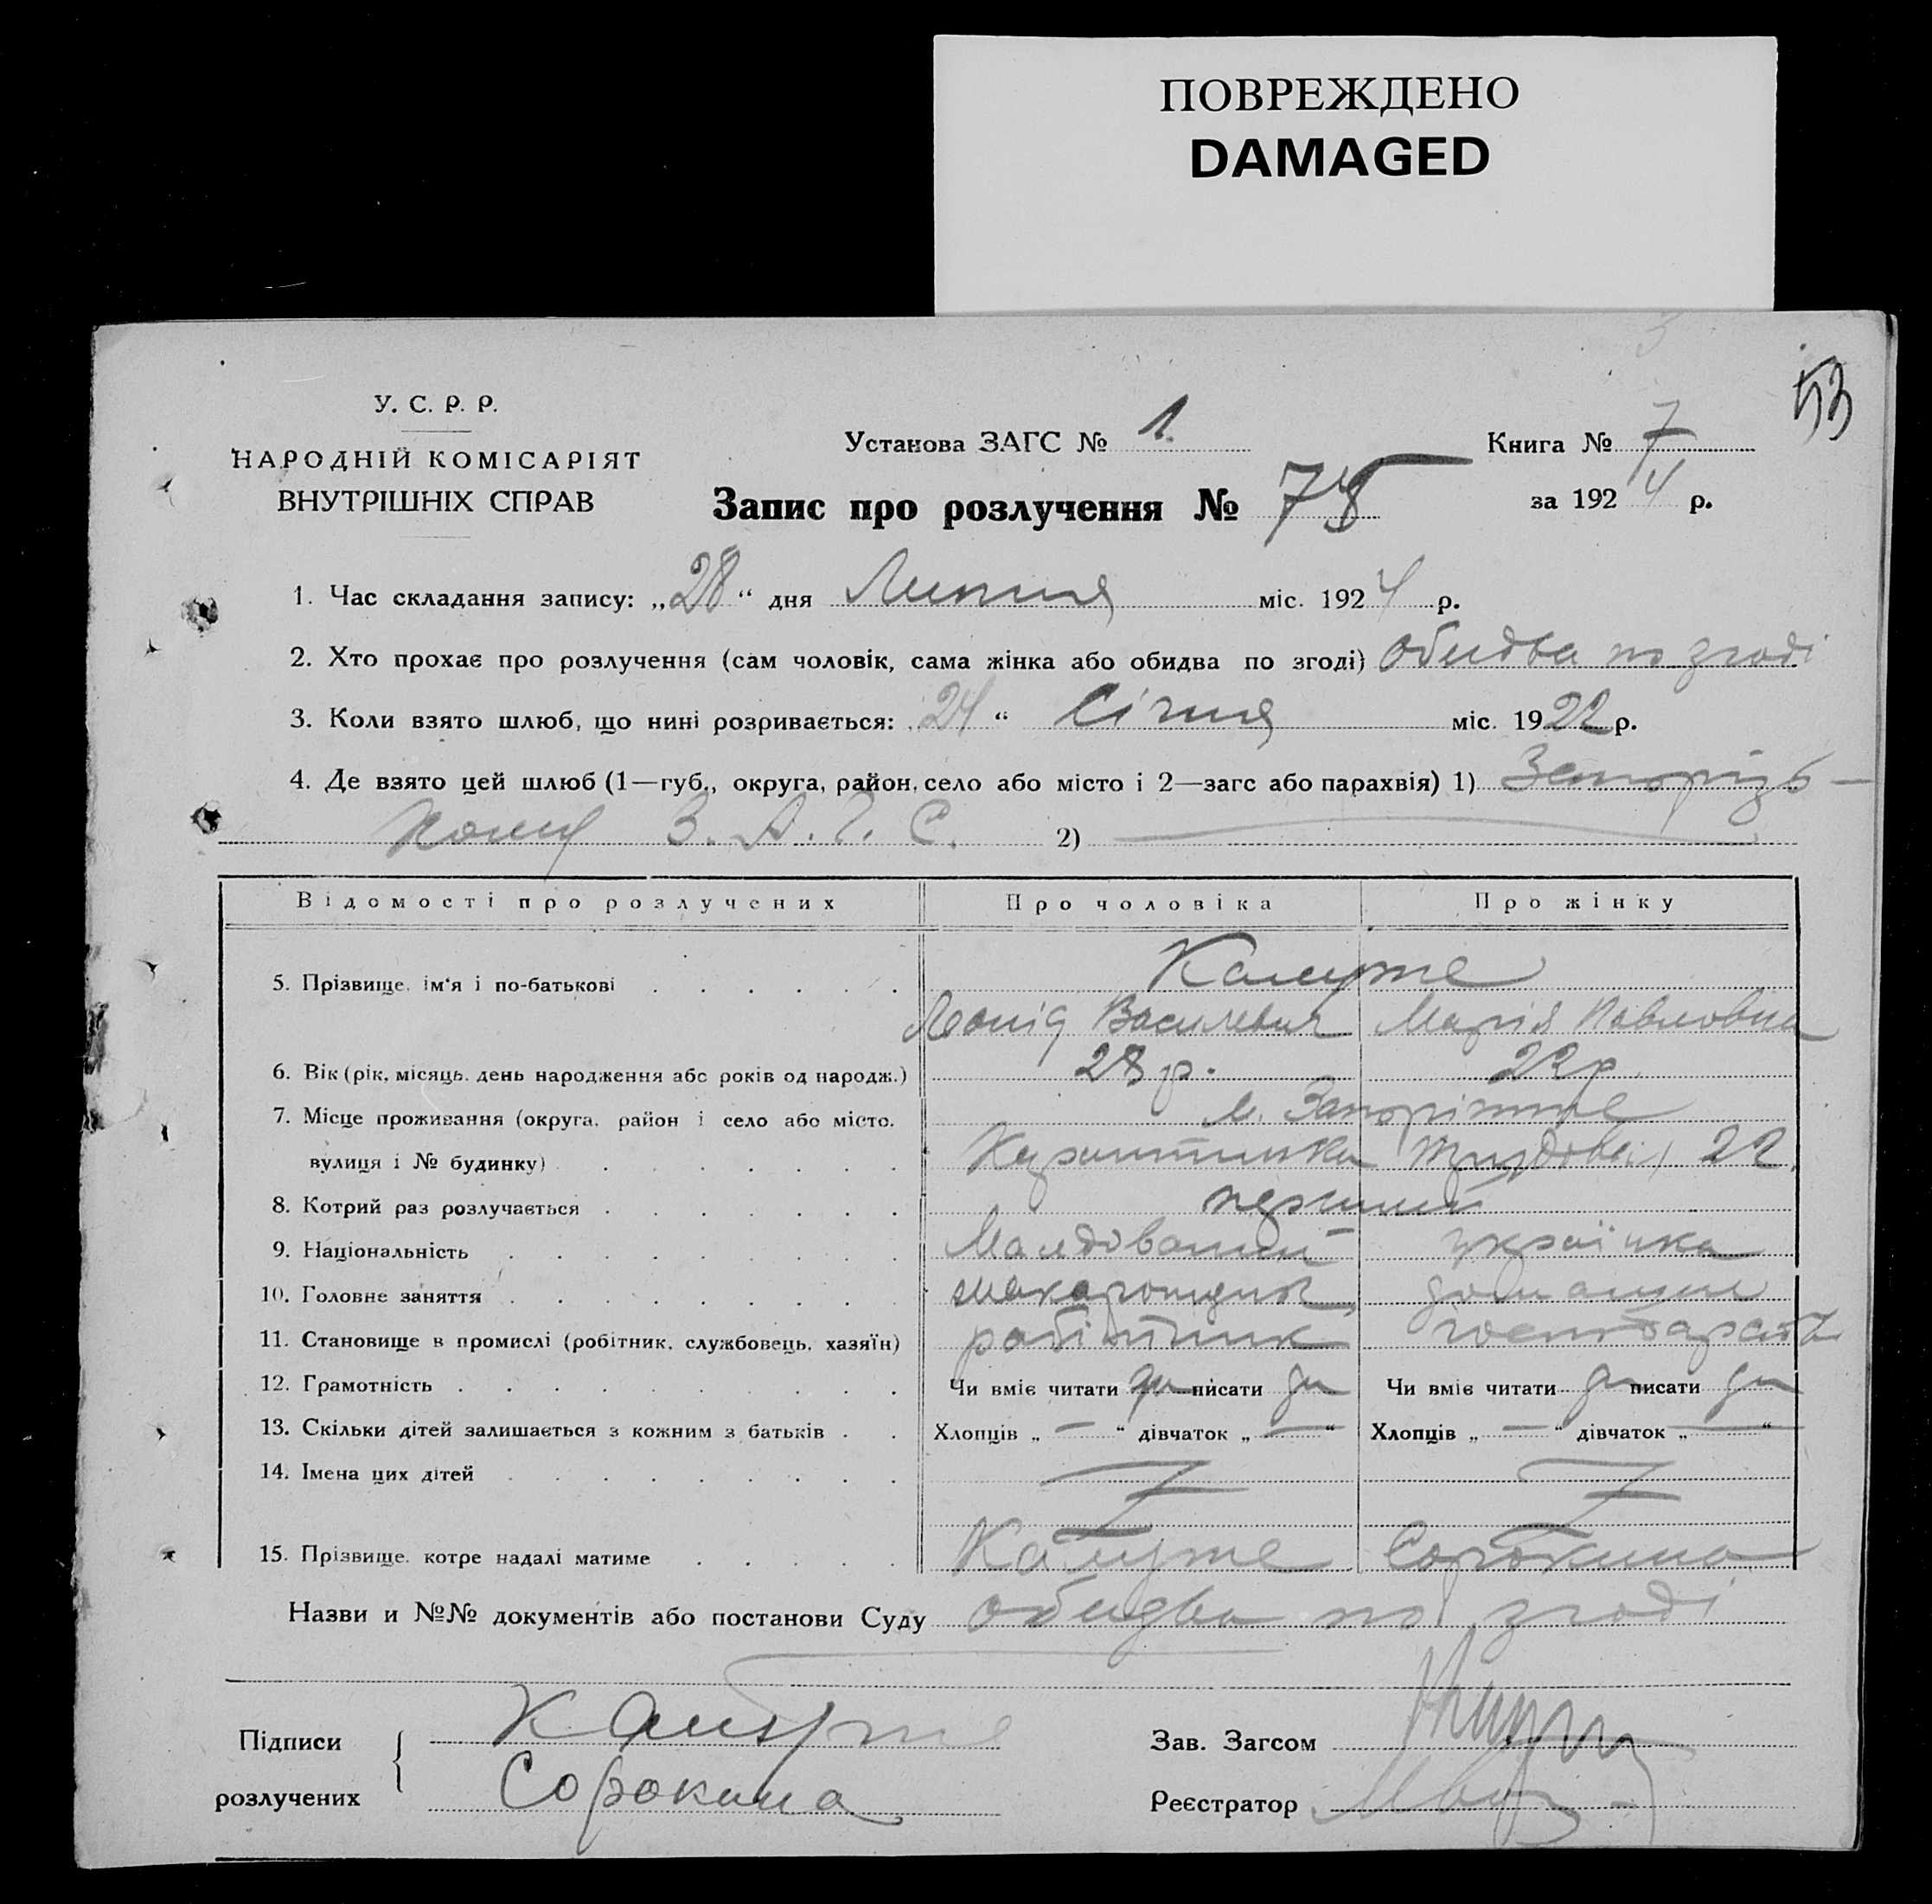 ПОВРЕЖДЕНО
DAMAGED
53
У. С. Р. Р.
НАРОДНІЙ КОМІСАРІЯТ
ВНУТРІШНІХ СПРАВ
Установа ЗАГС № 1.
Книга № 7
за 1924 р.
Запис про розлучення № 78
1. Час складання запису: „28“ дня Липня міс. 1924 р.
2. Хто прохає про розлучення (сам чоловік, сама жінка або обидва по згоді) обидва по згоді
3. Коли взято шлюб, що нині розривається: 24 “ Січня міс. 1922 р.
4. Де взято цей шлюб (1—губ., округа, район, село або місто і 2—загс або парахвія) 1) Запорізь-
кому З.А.Г.С. 2)
Відомості про розлучених Про чоловіка Про жінку
5. Прізвище, ім'я і по-батькові
Леонід Васильевич Марія Павловна
6. Вік (рік, місяць, день народження або років од народж.) 28 р. 22 р.
7. Місце проживання (округа, район і село або місто, м. Запоріжжє
вулиця і № будинку) 22.
8. Котрий раз розлучається перший
9. Національність Молдований українка
10. Головне заняття макаронщик домашнє
11. Становище в промислі (робітник, службовець, хазяїн) робітник господарство
12. Грамотність Чи вміє читати да писати да Чи вміє читати да писати да
13. Скільки дітей залишається з кожним з батьків Хлопців „ — “ дівчаток „ — “ Хлопців „ — “ дівчаток „ — “
14. Імена цих дітей
15. Прізвище, котре надалі матиме Сорокина
Назви и №№ документів або постанови Суду обидва по згоді
Підписи
розлучених
Сорокина
Зав. Загсом
Реєстратор